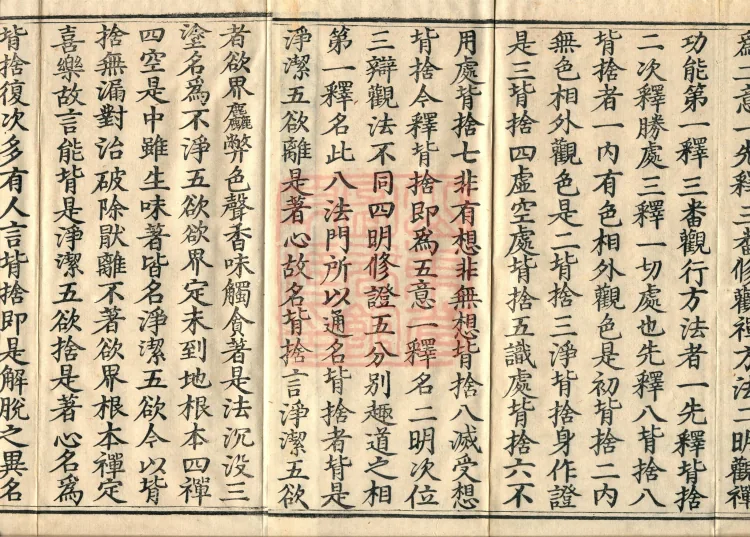 為二意一先釋三番修觀禪方法二明觀禪
功能第一釋三番觀行方法者一先釋背捨
二次釋勝處三釋一切處也先釋八背捨八
背捨者一內有色相外觀色是初背捨二內
無色相外觀色是二背捨三淨背捨身作證
是三背捨四虛空處背捨五識處背捨六不
用處背捨七非有想非無想背捨八滅受想
背捨今釋背捨即為五意一釋名二明次位
三辯觀法不同四明修證五分別趣道之相
第一釋名此八法門所以通名背捨者背是
淨潔五欲離是著心故名背捨言淨潔五欲
者欲界麤弊色聲香味觸貪著是法沉沒三
塗名為不淨五欲欲界定未到地根本四禪
四空是中雖生味著皆名淨潔五欲今以背
捨無漏對治破除猒離不著欲界根本禪定
喜樂故言能背是淨潔五欲捨是著心名為
背捨復次多有人言背捨即是解脫之異名